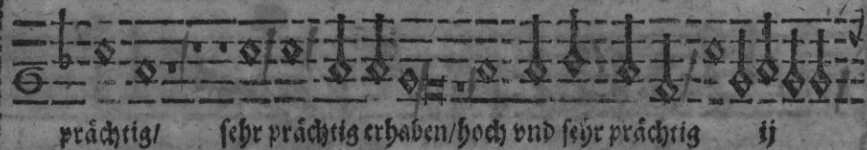 prächtig/ sehr prächtig erhaben/hoch vnd sehr prächtig ij